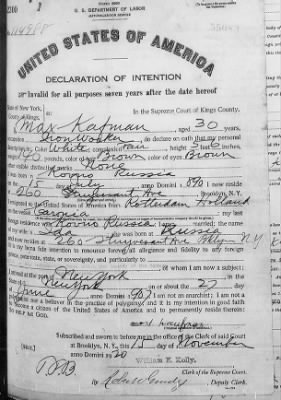 U. S. DEPARTMENT OF LABOR
NATURALIZATION SERVICE
UNITED STATES OF AMERICA
DECLARATION OF INTENTION
Invalid for all purposes seven years after the date hereof
State of New York,
In the Supreme Court of Kings County.
County of Kings,
I, Max Kafman, aged 30 years,
occupation Iron Worker, do declare on oath that my personal
description is: Color White, complexion, height 5 feet 6 inches,
weight 140 pounds, color of hair Brown, color of eyes Brown
other visible distinctive marks None
I was born in Kovno Russia
on the 15 day of July, anno Domini 1890; I now reside
at 260 Ave, Brooklyn, N. Y.
I emigrated to the United States of America from Rotterdam Holland
on the vessel; my last
foreign residence was Kovno Russia; I am married; the name
of my wife is Ida; she was born at Russia
and now resides at 260 Ave Bklyn N.Y.
It is my bona fide intention to renounce forever all allegiance and fidelity to any foreign
prince, potentate, state, or sovereignty, and particularly to
, of whom I am now a subject;
I arrived at the port of New York, in the
State of New York, on or about the 27 day
of June, anno Domini 1907; I am not an anarchist; I am not a
polygamist nor a believer in the practice of polygamy; and it is my intention in good faith
to become a citizen of the United States of America and to permanently reside therein:
Subscribed and sworn to before me in the office of the Clerk of said Court
[SEAL] at Brooklyn, N. Y., this 15 day of November
anno Domini 1920
William E. Kelly,
Clerk of the Supreme Court.
By, Deputy Clerk.